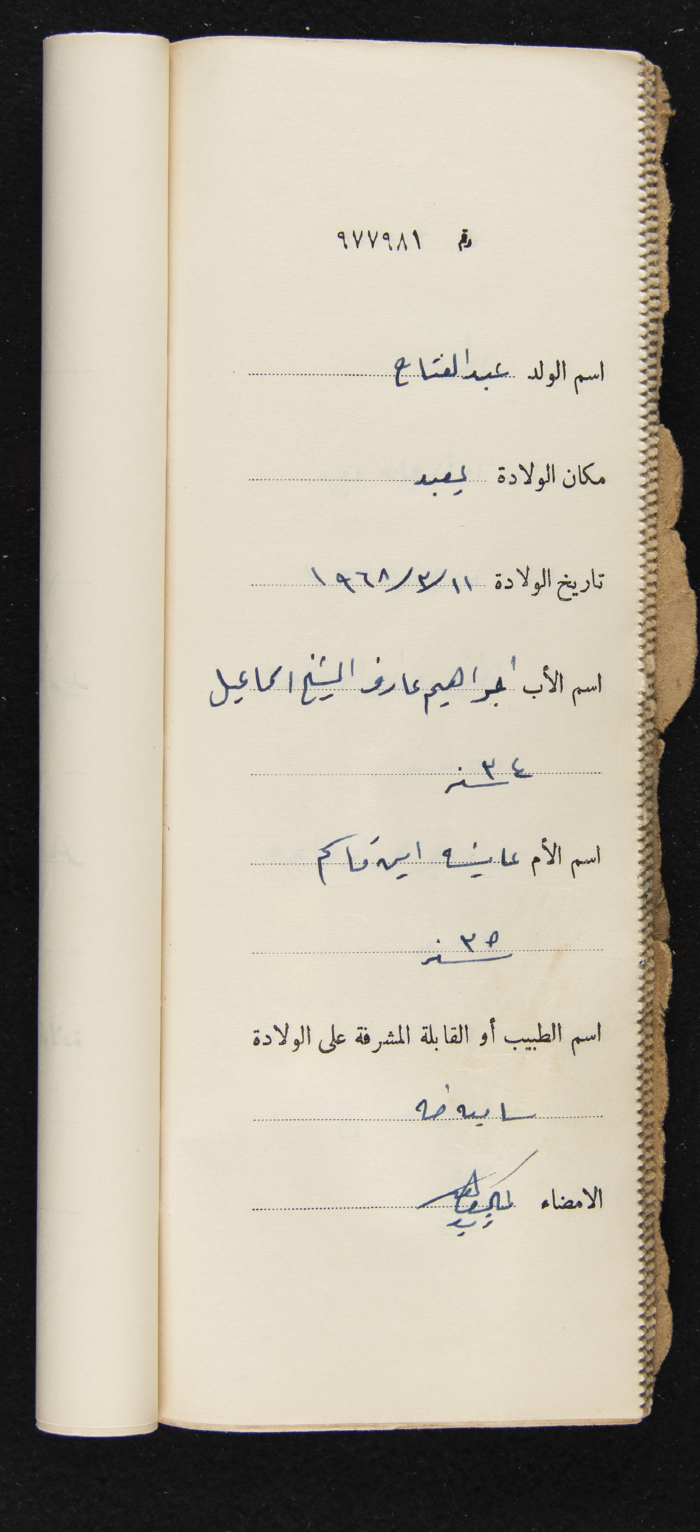 رقم ٩٧٧٩٨١
اسم الولد عبد الفتاح
مكان الولادة يعبد
تاريخ الولادة ١١/٣/١٩٦٨
اسم الأب ابراهيم عارف الشيخ اسماعيل
٣٤ سنه
اسم الأم عايشه امين قاسم
٣٥ سنه
اسم الطبيب أو القابلة المشرفة على الولادة
ساميه
الامضاء